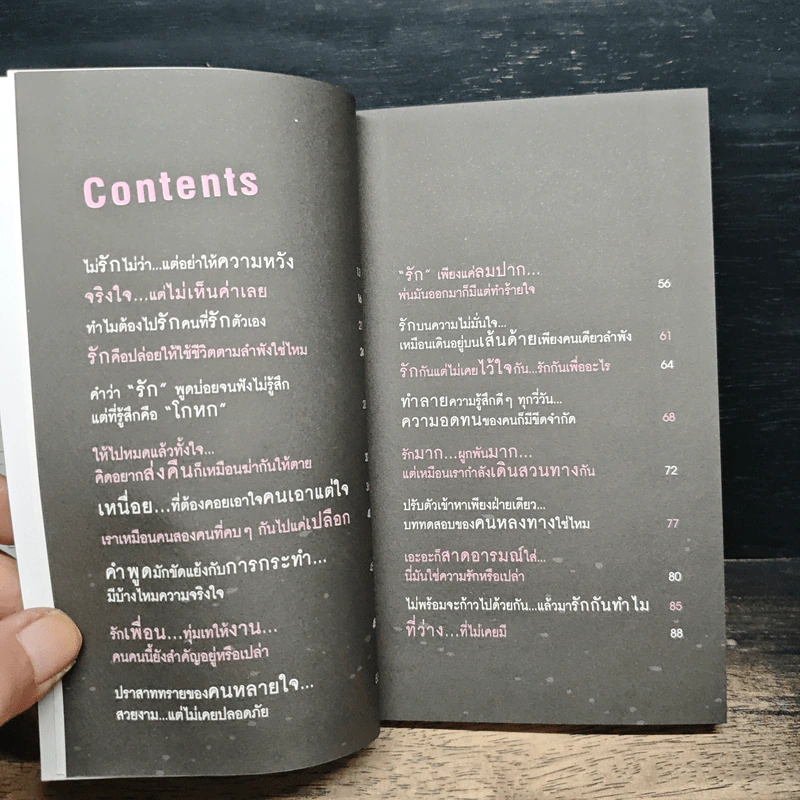 Contents
ไม่รักไม่ว่า...แต่อย่าให้ความหวัง
จริงใจ...แต่ไม่เห็นค่าเลย
ทำไมต้องไปรักคนที่รักตัวเอง
รักคือปล่อยให้ใช้ชีวิตตามลำพังใช่ไหม
คำว่า “รัก” พูดบ่อยจนฟังไม่รู้สึก
แต่ที่รู้สึกคือ “โกหก”
ให้ไปหมดแล้วทั้งใจ...
คิดอยากส่งคืนก็เหมือนฆ่ากันให้ตาย
เหนื่อย...ที่ต้องคอยเอาใจคนเอาแต่ใจ
เราเหมือนคนสองคนที่คบๆ กันไปแค่เปลือก
คำพูดมักขัดแย้งกับการกระทำ...
มีบ้างไหมความจริงใจ
รักเพื่อน...ทุ่มเทให้งาน...
คนคนนี้ยังสำคัญอยู่หรือเปล่า
ปราสาททรายของคนหลายใจ...
สวยงาม...แต่ไม่เคยปลอดภัย
“รัก” เพียงแค่ลมปาก...
พ่นมันออกมาก็มีแต่ทำร้ายใจ 56
รักบนความไม่มั่นใจ...
เหมือนเดินอยู่บนเส้นด้ายเพียงคนเดียวลำพัง 61
รักกันแต่ไม่เคยไว้ใจกัน...รักกันเพื่ออะไร 64
ทำลายความรู้สึกดีๆ ทุกวี่วัน...
ความอดทนของคนก็มีขีดจำกัด 68
รักมาก...ผูกพันมาก...
แต่เหมือนเรากำลังเดินสวนทางกัน 72
ปรับตัวเข้าหาเพียงฝ่ายเดียว...
บททดสอบของคนหลงทางใช่ไหม 77
เอะอะก็สาดอารมณ์ใส่...
นี่มันใช่ความรักหรือเปล่า 80
ไม่พร้อมจะก้าวไปด้วยกัน...แล้วมารักกันทำไม 85
ที่ว่าง...ที่ไม่เคยมี 88